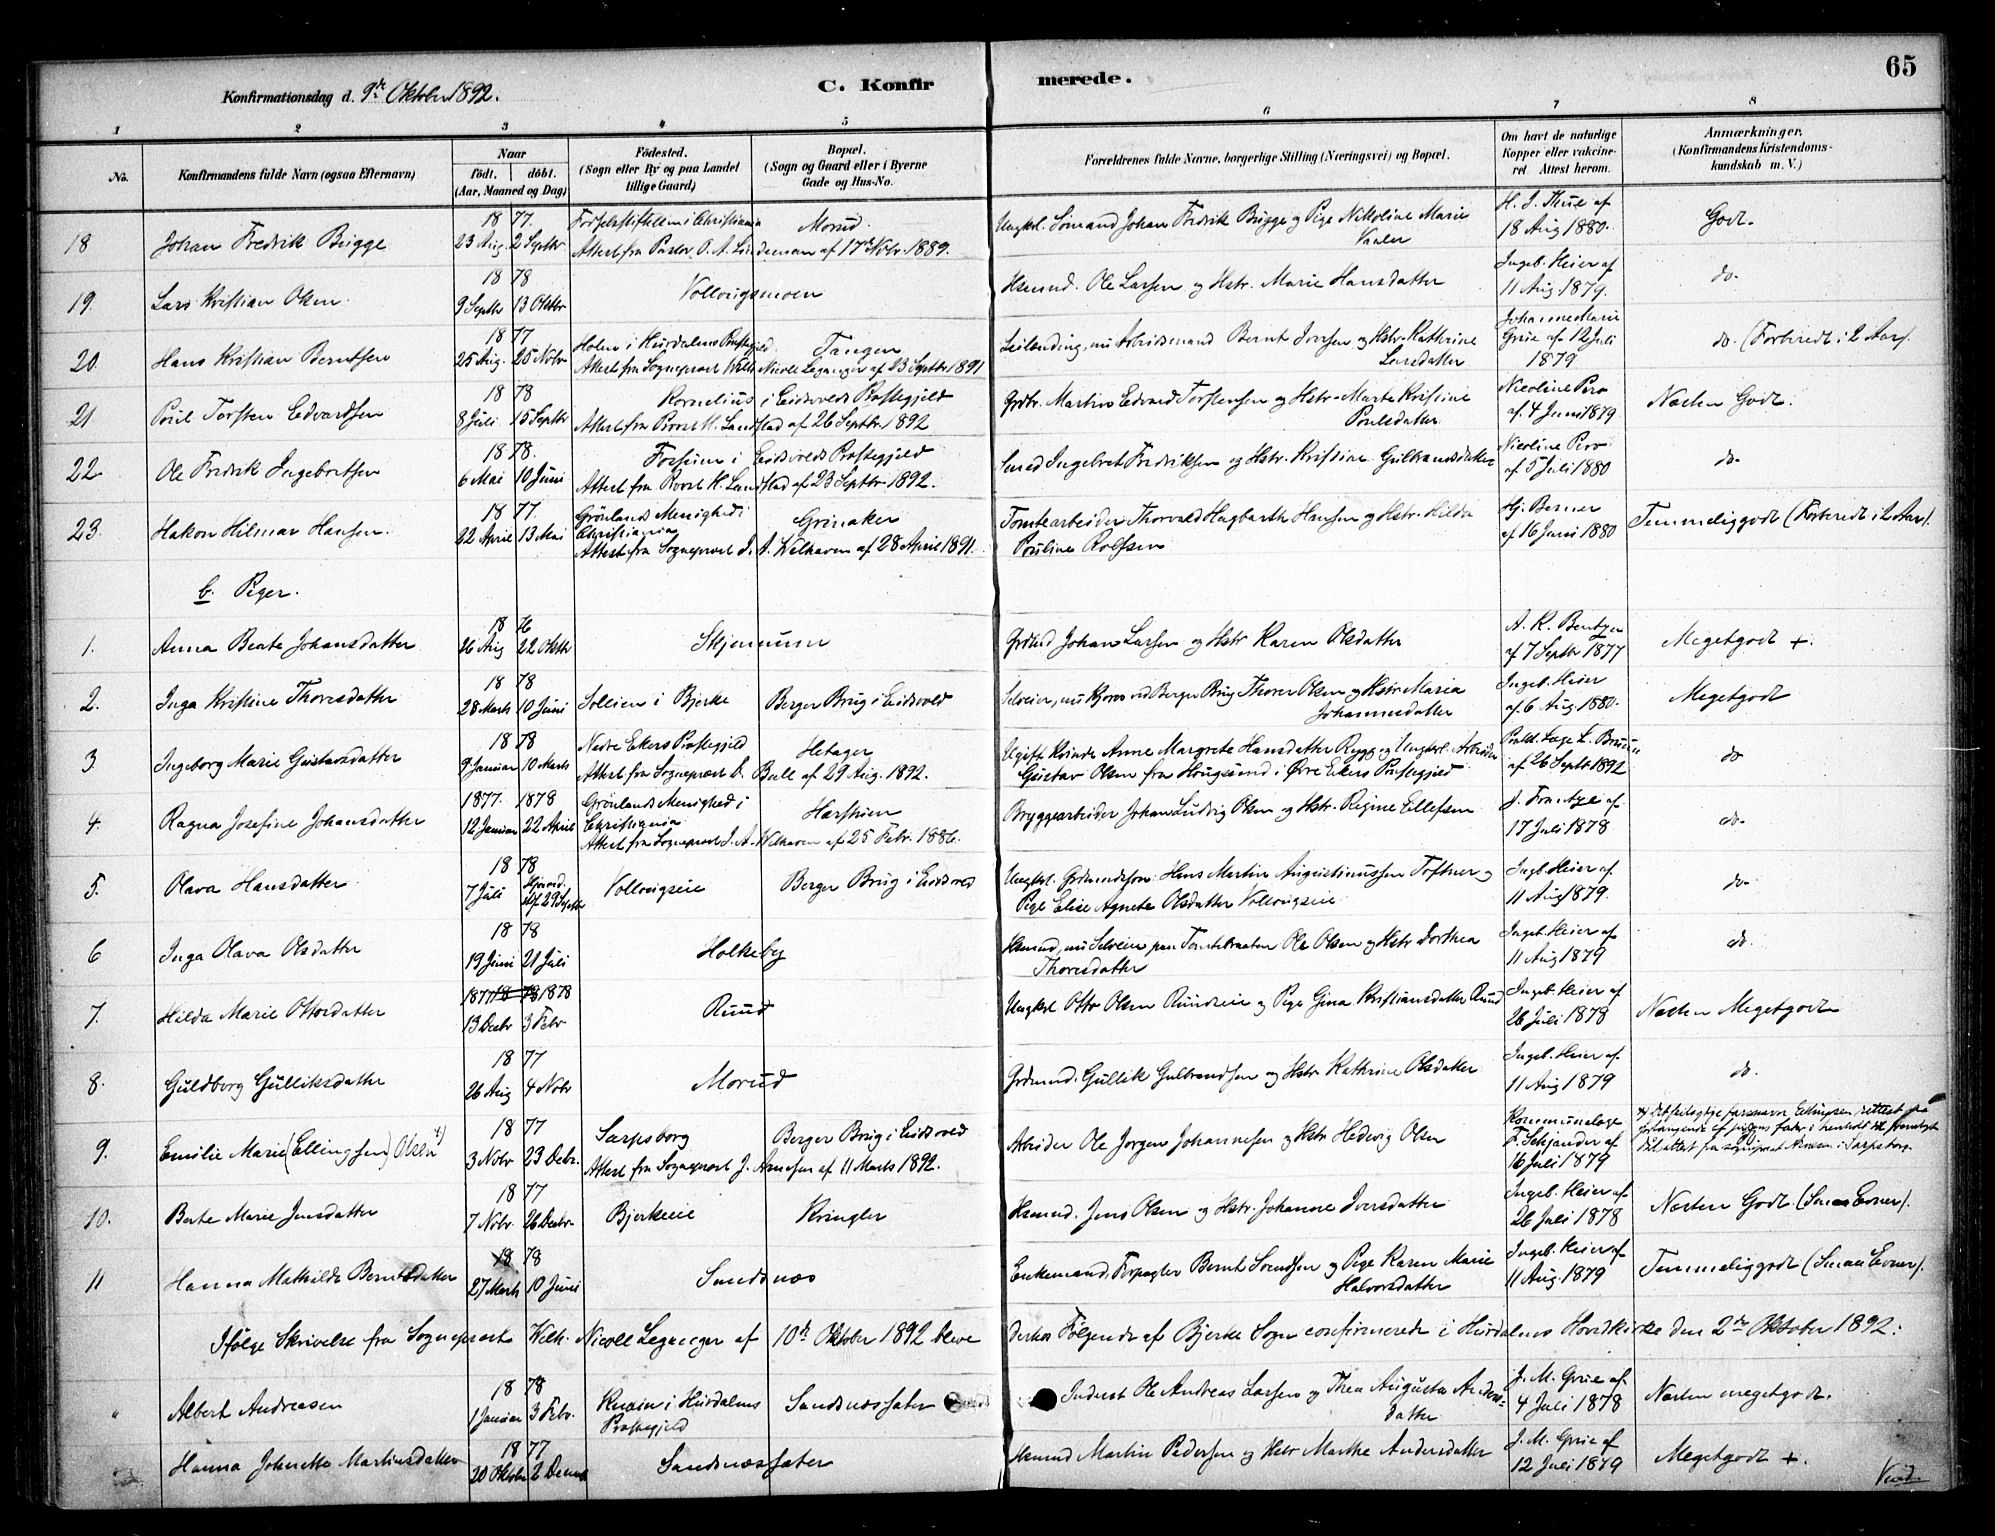 65
Konfirmationsdag d. 9de Oktober 1892.
C. Konfirmerede.
1 2 3 4 5 6 7 8
No.
Konfirmandens fulde Navn (ogsaa Efternavn)
Naar
födt. döbt.
(Aar, Maaned og Dag)
Födested.
(Sogn eller By og paa Landet
tillige Gaard)
Bopæl.
(Sogn og Gaard eller i Byerne
Gade og Hus-No.
Forældrenes fulde Navne, borgerlige Stilling (Næringsvei) og Bopæl.
Om havt de naturlige
Kopper eller vakcine-
ret Attest herom.
Anmærkninger.
(Konfirmandens Kristendoms-
kundskab m. V.)
18 Johan Fredrik Brügge 1877 23 Aug. 2 Septbr Fødselsstiftelsen i Christiania Morud
Attest fra Pastor O. A. Lindeman af 17de Novbr. 1889.
Ungkl. Sømand Johan Fredrik Brügge og Pige Nikoline Marie
Vaaler
H. J. Thue af
18 Aug 1880.
Godt.
19. Lars Kristian Olsen. 1878 9 Septbr 13 Oktbr Vollaugsmoen
Hsmnd. Ole Larsen og Hstr. Marie Hansdatter
Ingeb. Heier af
11 Aug. 1879.
do.
20. Hans Kristian Berntsen 1877 25 Aug. 25 Novbr Holm i Hurdalens Præstegjeld Tangen
Attest fra Sogneprest Wilh. Nicoll Leganger af 23 Septbr 1891
Leilending, nu Arbeidsmand Bernt Iversen og Hstr. Kathrine
Larsdatter
Johanne Marie
Grüe af 12 Juli
1879
do. (Forberedt i 2 Aar).
21 Poul Torsten Edvardsen 1878 8 Juli 15 Septbr Kornelius i Eidsvolds Præstegjeld
Attest fra Provst H. Landstad af 26 Septbr. 1892
Grdbr. Martin Edvard Torstensen og Hstr. Marte Kristine
Poulsdatter
Nicoline Pero
af 4 Juni 1879
Næsten Godt.
22 Ole Fredrik Ingebretsen 1878. 6 Mai 10 Juni i Eidsvolds Præstegjeld
Attest fra Provst H. Landstad af 23 Septbr. 1892.
Smed Ingebret Fredriksen og Hstr. Kristine Gulbransdatter
Nicoline Pero
af 5 Juli 1880
do.
23. Hakon Hilmar Hansen. 1877. 22 April 13 Mai Grønlands Menighed i
Christiania Grinaker
Attest fra Sogneprest J. A. Welhaven af 28 April 1891.
Tomtearbeider Thorvald Hagbarth Hansen og Hstr. Hilda
Pauline Rolfsen
Hj. Berner
af 16 Juni 1880
Temmeliggodt (Forberedt i 2 Aar).
b. Piger.
1. Anna Beate Johansdatter 1876 26 Aug 22 Oktbr Skjennum
Grdmd Johan Larsen og Hstr Karen Olsdatter
A. R. Bentzen
af 7 Septbr 1877
Megetgodt +.
2. Inga Kristine Thoresdatter 1878 28 Marts 10 Juni Sollien i Bjerke Berger Brug i Eidsvold
Selveier, nu Kjører ved Berger Brug Thorer Olsen og Hstr. Maria
Johannesdatter
Ingeb. Heier
af 6 Aug. 1880.
Megetgodt
3. Ingeborg Marie Gustavsdatter 1878 9 Januar 10 Marts Nedre Ekers Præstegjeld Hetager
Attest fra Sogneprest D. Bull af 29 Aug. 1892.
Ugift Kvinde Anne Margrete Hansdatter Rygg og Ungkrl. Arbeider
Gustav Olsen fra Hougsund i Øvre Ekers Præstegjeld
Prakt. Læge L. Bruun
af 26 Septbr 1892
do
4. Ragna Josefine Johansdatter 1877. 1878 12 Januar 22 April Grønlands Menighed i
Christiania Hærstuen
Attest fra Sogneprest J. A. Welhaven af 25 Febr. 1886.
Bryggearbeider Johan Ludvig Olsen og Hstr. Regine Ellefsen
17 Juli 1878
do.
5. Olava Hansdatter 1878 7 Juli Hjemmed.
29 Septbr Vollaugseie Berger Brug i Eidsvold
Ungkl. Grdmandssøn Hans Martin Augustinussen Toftner og
Pige Elise Agnete Olsdatter Vollaugseie
Ingb. Heier af
11 Aug 1879.
do.
6 Inga Olava Olsdatter 1878 19 Juni 21 Juli Holkeby
Hsmnd, nu Selveier paa Tomtebraaten Ole Olsen og Hstr Dorthea
Thoresdatter
Ingeb. Heier af
11 Aug 1879
do.
7. Hilda Marie Ottosdatter 1877 1878 13 Decbr 3 Febr Ruud
Ungkrl Otto Olsen Ruudseie og Pige Gina Kristiansdatter Ruud
Ingeb. Heier af
26 Juli 1878
Næsten Megetgodt
8. Guldborg Gulliksdatter 1877 26 Aug 4 Novbr Morud
Grdmnd. Gullik Gulbrandsen og Hstr Kathrine Olsdatter
Ingeb. Heier af.
11 Aug 1879
do.
9. Emilie Marie (Ellingsen) Olsen x) 1877 3 Novbr 23 Decbr. Sarpsborg Berger Brug i Eidsvold
Attest fra Sogneprest J. Arnesen af 11 Marts 1892.
Arbeider Ole Jørgen Johannesen og Hstr Hedvig Olsen
Kommunelæge
F. Schjander af
16 Juli 1879
x) Det feilagtige farsnavn Ellingsen, rettet paa
forlangende af pigens fader i henhold til fremlagt
dåbattest fra sogneprest Arnesen i Sarpsborg.
10. Berte Marie Jensdatter 1877 7 Novbr. 26 Decbr. Bjerkeeie Kringler
Hsmnd. Jens Olsen og Hstr. Johanne Iversdatter
Ingeb. Heier af
26 Juli 1878
Næsten Godt (Smaa Evner).
11 Hanna Mathilde Berntsdatter 1878 27 Marts 10 Juni Sandsnæs
Enkemand, Forpagter Bernt Svendsen og Pige Karen Marie
Halvorsdatter
Ingeb. Heier af
11 Aug. 1879
Temmeliggodt (Smaa Evner).
Ifølge Skrivelse fra Sogneprest Wilh. Nicoll Leganger af 10de Oktober 1892 bleve derhos Følgende af Bjerke Sogn confirmerede i Hurdalens Hovedkirke den 2den Oktober 1892:
" Albert Andreasen 1878 1 Januar 3 Febr. i Hurdalens
Præstegjeld Sandsnæssæter
Inderst Ole Andreas Larsen og Thea Augusta Anders-
datter
J. M. Grüe af
4 Juli 1878
Næsten megetgodt.
Hanna Johnette Martinsdatter 1877 20 Oktober 2 Decemb Sandsnæssæter
Hsmnd Martin Pedersen og Hstr Marthe Andersdatter
J. M. Grüe af
12 Juli 1879
Megetgodt +.
Vend.